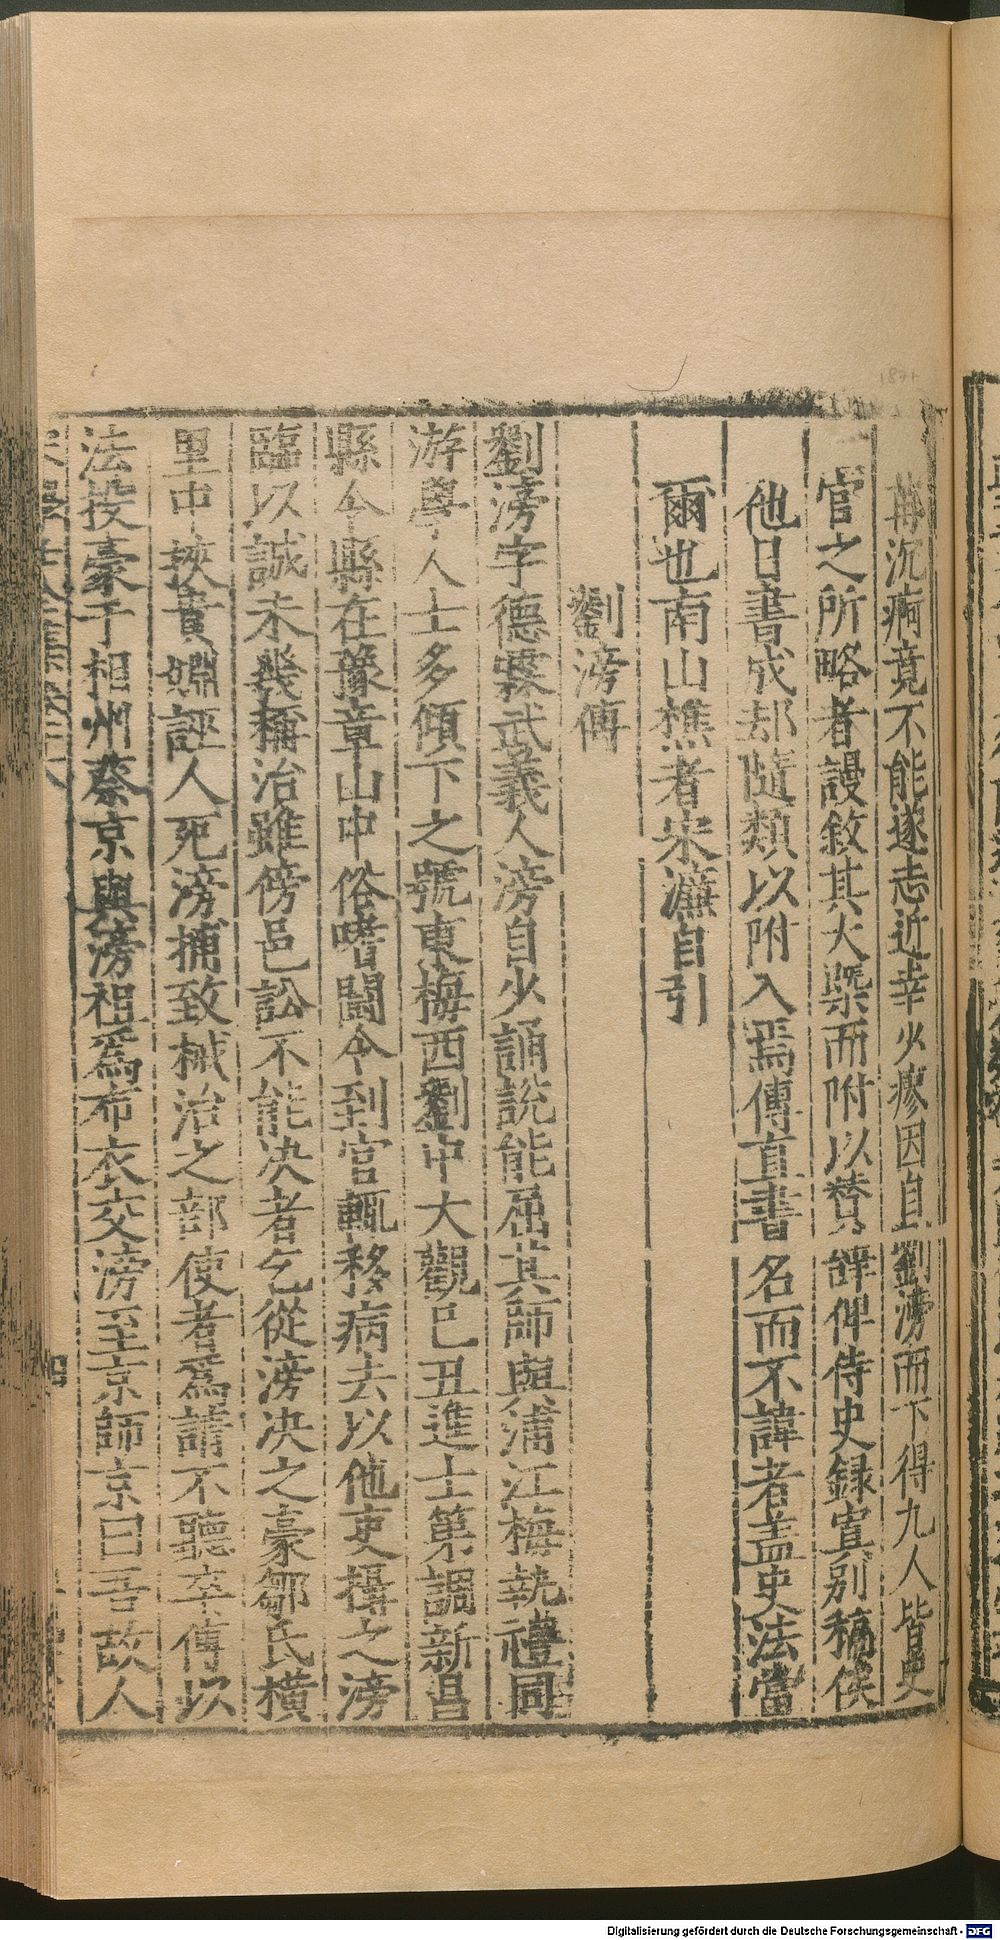 苒沉痾竟不能遂志近幸少瘳因自劉滂而下得九人皆史
官之所略者謾敘其大槩而附以贊辭俾侍史録寘别稿俟
他日書成却隨類以附入焉傳直書名而不諱者盖史法當
爾也南山樵者宋濂自引
劉滂傳
劉滂字德霖武義人滂自少誦說能屈其師與浦江梅執禮同
游學人士多傾下之號東梅西劉中大觀己丑進士第調新昌
縣令縣在豫章山中俗嗜鬪令到官輒移病去以他吏攝之滂
臨以誠未幾稱治雖傍邑訟不能决者乞從滂决之豪鄒氏横
里中挾貴婣誣人死滂捕致械治之部使者爲請不聽卒傅以
法投豪于相州蔡京與滂祖爲布衣交滂至京師京曰吾故人
四
1871
Digitalisierung gefördert durch die Deutsche Forschungsgemeinschaft - DFG